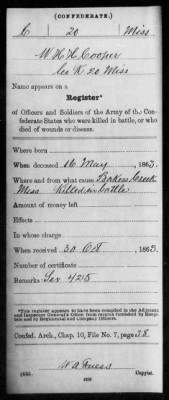 (CONFEDERATE.)
C 20 Miss.
W H H Cooper
Co K 20 Miss
Name appears on a
Register*
of Officers and Soldiers of the Army of the Con-
federate States who were killed in battle, or who
died of wounds or disease.
Where born
When deceased 16 May, 1863.
Where and from what cause Bakers Creek
Miss Killed in battle
Amount of money left
Effects
In whose charge
When received 30 Oct, 1863.
Number of certificate
Remarks 425
*This register appears to have been compiled in the Adjutant
and Inspector General's Office from records furnished by Hospi-
tals and by Regimental and Company Officers.
Confed. Arch., Chap. 10, File No. 7, page 28
Copyist.